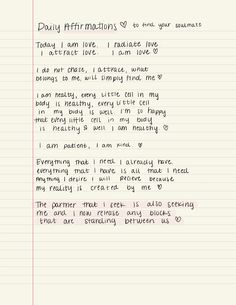 Daily Affirmations ♡ to find your soulmate
Today I am love. I radiate love
I attract love. I am love ♡
I do not chase, I attract, what
belongs to me, will simply find me ♡
I am healthy, every little cell in my
body is healthy, every little cell
in my body is well. I'm so happy
that every little cell in my body
is healthy & well I am healthy ♡
I am patient, I am kind ♡
Everything that I need I already have
everything that I have is all that I need
Anything I desire I will recieve because
my reality is created by me ♡
The partner that I seek is also seeking
me and I now release any blocks
that are standing between us ♡